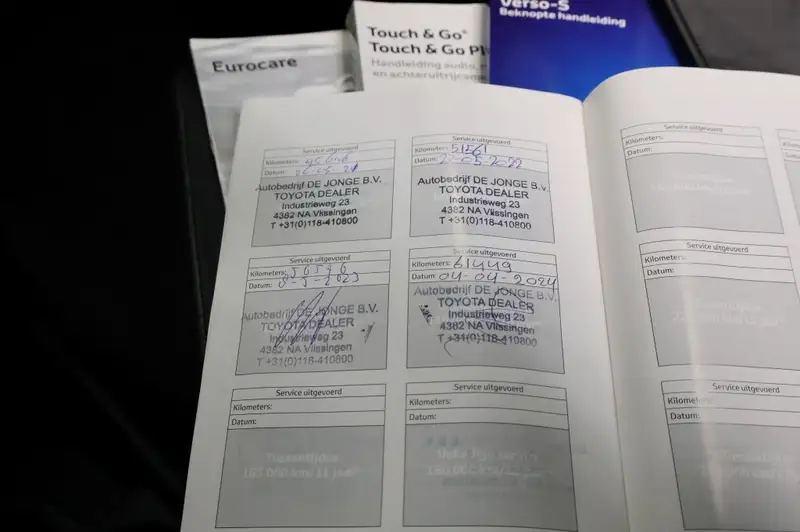 Verso-S
Beknopte handleiding
Touch & Go®
Touch & Go Pl
Handleiding audio,
en achteruitrijcame
Eurocare
Service uitgevoerd
Kilometers:
Datum:
Autobedrijf DE JONGE B.V.
TOYOTA DEALER
Industrieweg 23
4382 NA Vlissingen
T +31(0)118-410800
Service uitgevoerd
Kilometers: 51561
Datum: 22-05-2022
Autobedrijf DE JONGE B.V.
TOYOTA DEALER
Industrieweg 23
4382 NA Vlissingen
T +31(0)118-410800
Service uitgevoerd
Kilometers: 56546
Datum:
Autobedrijf DE JONGE B.V.
TOYOTA DEALER
Industrieweg 23
4382 NA Vlissingen
T +31(0)118-410800
Service uitgevoerd
Kilometers: 61449
Datum: 04-04-2024
Autobedrijf DE JONGE B.V.
TOYOTA DEALER
Industrieweg 23
4382 NA Vlissingen
T +31(0)118-410800
Service uitgevoerd
Kilometers:
Datum:
Service uitgevoerd
Kilometers:
Datum:
Service uitgevoerd
Kilometers:
Datum:
Service uitgevoerd
Kilometers:
Datum:
Service uitgevoerd
Kilometers:
Datum: